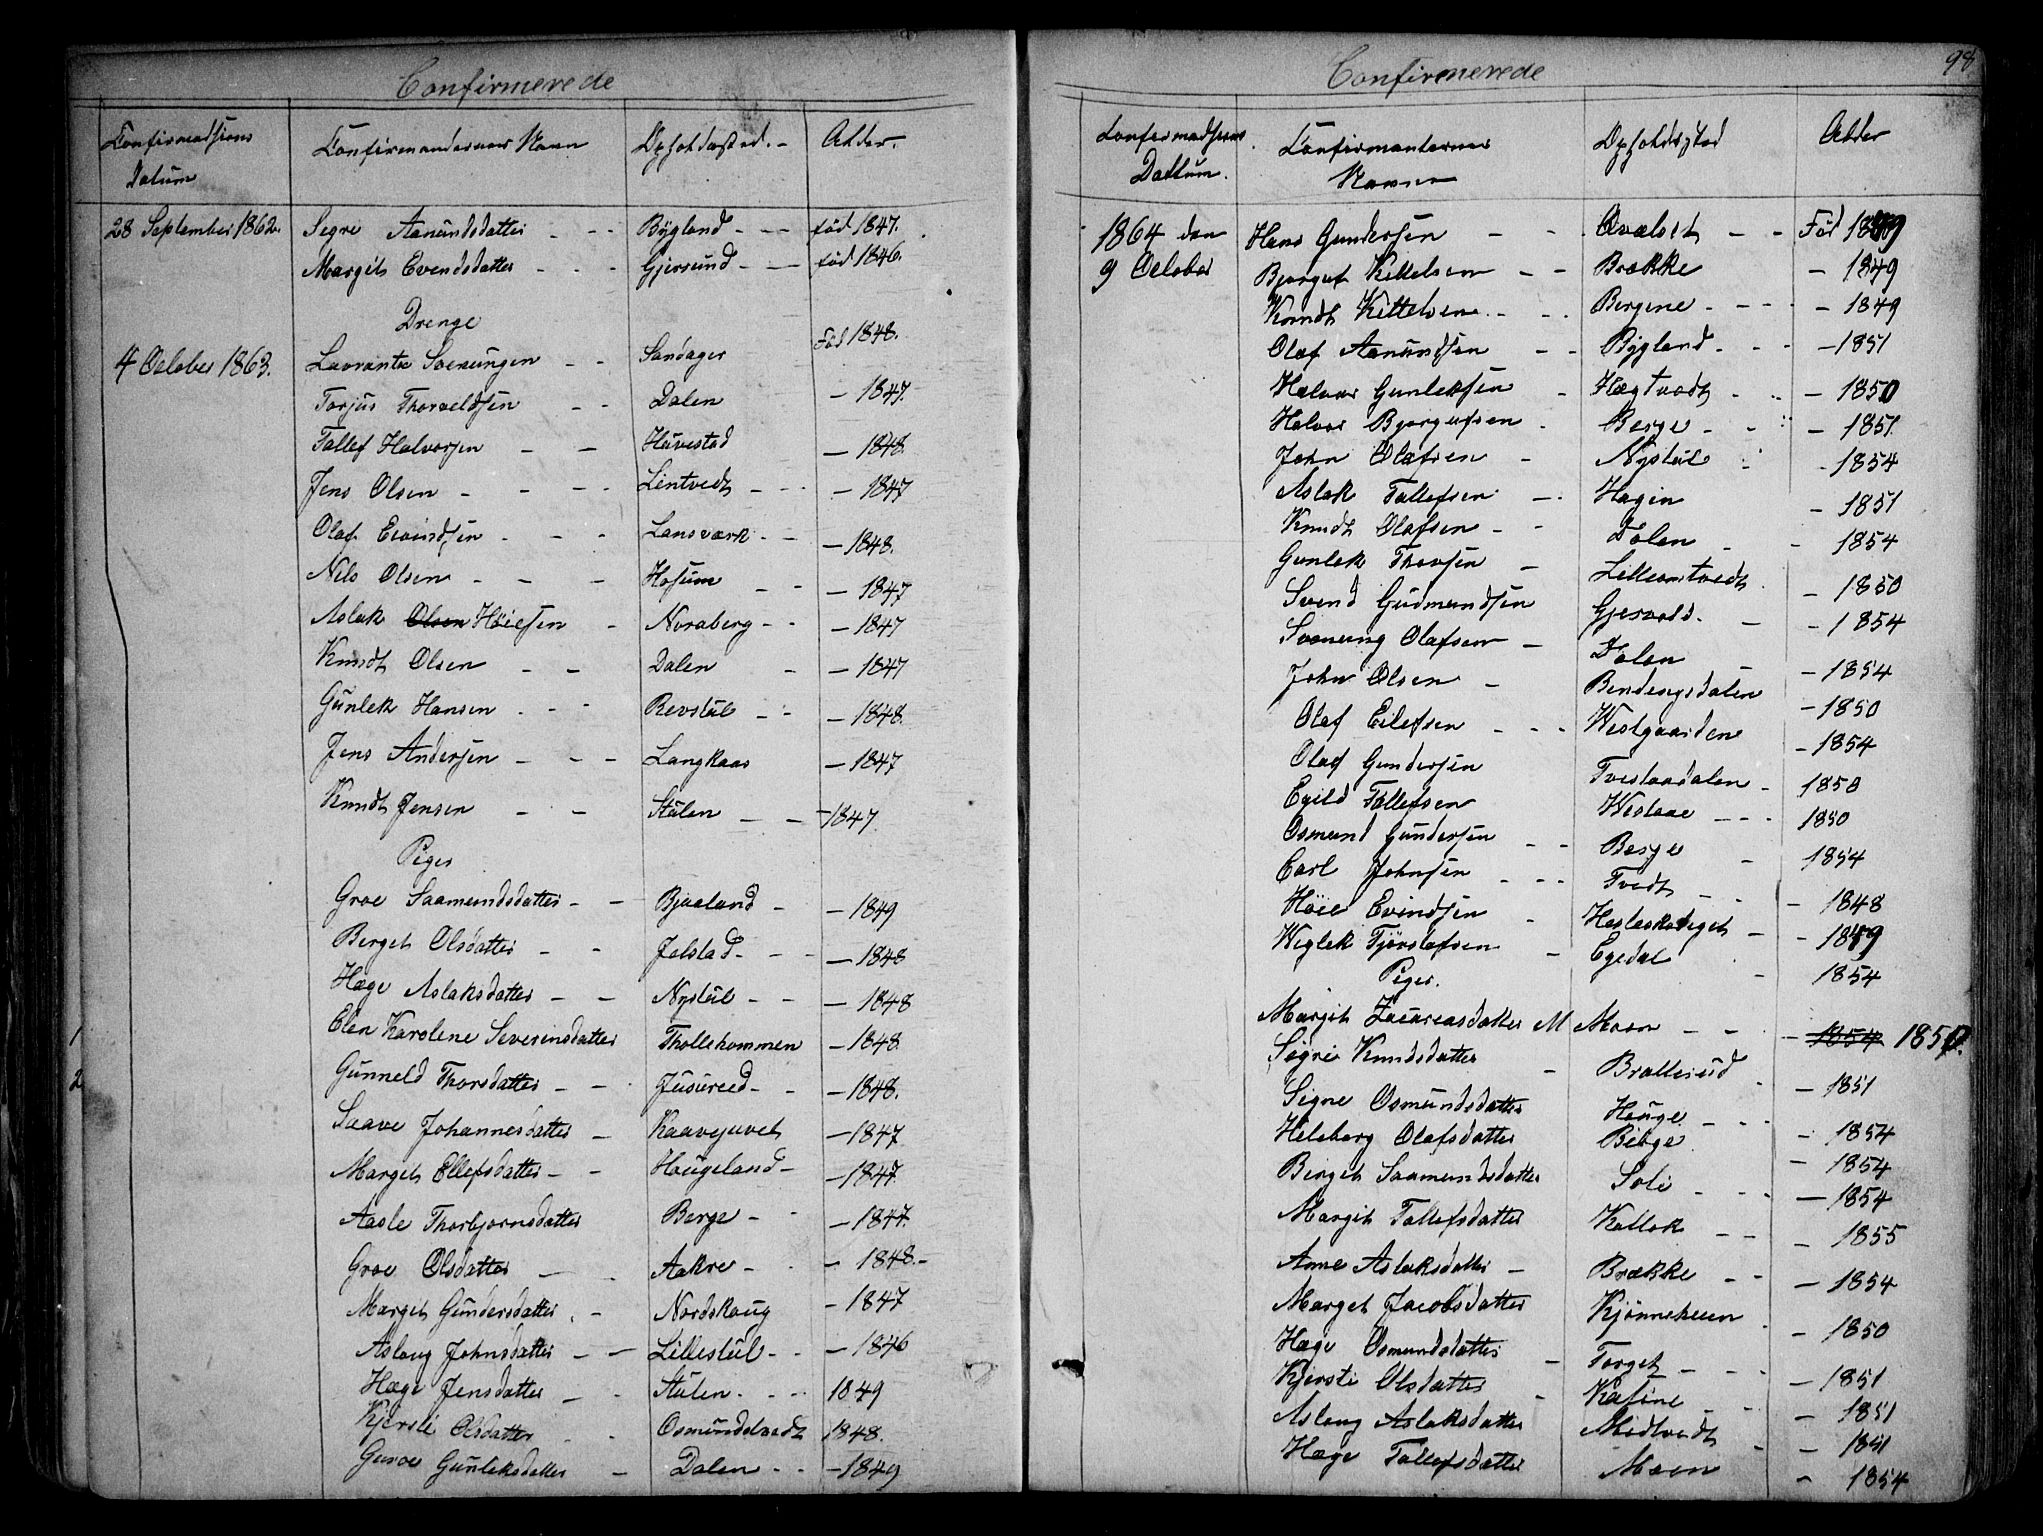 Confirmerede
Confirmadsions Datum
Confirmandernes Navn
Opholdssted.
Alder.
28 September 1862. Segre Aanundsdatter - - - Bÿgland - - - född 1847.
Margit Evendsdatter - - - Gjersund - - född 1846.
Drenge
4 October 1863. Lavrants Svenungsen - Sandager Föd 1848.
Torjus Thoraldsen - - Dalen - 1847.
Tollef Halvorsen - - Havestad - 1848.
Jens Olsen - - - - Lintvedt - - - 1847
Olaf Eivindsen - - - Lansværk - - - 1848.
Nils Olsen - - - Hosum - - 1847
Aslak Olsen Höiesen - Noraberg - - - 1847
Knudt Olsen - - Dalen - - 1847
Gunlek Hansen - - - Revstul - - - 1848.
Jens Andersen - - - Langkaas - 1847
Knudt Jensen - - Stülen - - - 1847.
Piger
Groe Saamundsdatter - - Bjaaland - - 1849
Berget Olsdatter - - Jelstad - - - - 1848
Hæge Aslaksdatter - - Nystul - - - 1848
1 Elen Karolene Severinsdatter Thollehommen - 1848.
2 Gunneld Thorsdatter - - Jusureed - - 1848.
Saave Johannesdatter - Kaavejuvet - 1847
Marget Ellefsdatter - - Hougeland - - 1847.
Aasle Thorbjornsdatter Berge - - 1847.
Groe Olsdatter - - Aakre - - 1848. -
Margit Gundersdatter - - Nordskoug - 1847
Aslaug Johnsdatter - - Lillestul - - - 1846
Hæge Jensdatter - - Stülen - - - 1849
Kjersti Olsdatter - - Osmundstvedt 1848.
Gunleksdatter - Dalen - - - 1849
98
Confirmerede
Confirmadsions Dattum.
Confirmanternes Navne
Opholdsstad
Alder
1864 den Hans Gundersen - - Qvalset - - Föd 1849
9 October Bjorguf Kittelsen - - Brække - 1849
Knudt Kittelsen - - - Bergene - - - - 1849
Olaf Aanundsen - - Bÿgland - - - - 1851
Halvor Gunleksen - Hægtvedt - - - 1850
Halvor Bjorgufsen - Berge - - - 1851.
John Olafsen - Nystul - 1854
Aslak Tollefsen - Hagin - 1851
Knudt Olafsen - - Dalen - - 1854
Gunlek Thorsen - Lilleomtvedt - 1850
Svend Gudmundsen Gjervold - - 1854
Svenung Olafsen - Dalen - - 1854
John Olsen - Bendengsdalen - 1850
Olaf Eilefsen - - - Westgaarden - 1854
Olaf Gundersen Tveitaadalen - 1850
Egild Tollefsen Westaae - - - 1850
Osmund Gundersen - - Berge - 1854
Carl Johnsen - - - Tvedt - - - 1848
Höie Evindsen - Hesteskodiget - - 1849
Wiglek Tjöstofsen - Egedal - 1854
Piger.
Margit Zacariasdatter M Moen - - - 1854 1850.
Segri Knudsdatter - Bratterud - 1851
Signe Osmundsdatter Houge - - - - 1854
Helebarg Olafsdatter Berge - 1854
Birget Saamundsdatter Soli - - - - 1854
Margit Tollefsdatter Kallak - - - 1855
Anne Aslaksdatter - Brække - - - 1854
Marget Jacobsdatter Kjönneheien - - 1850
Hæge Osmundsdatter - Torget - - - - 1851
Kjersti Olsdatter - Kasine - - - 1851
Aslaug Aslaksdatter Midtvedt - - 1851
Hæge Tollefsdatter Moen - 1854